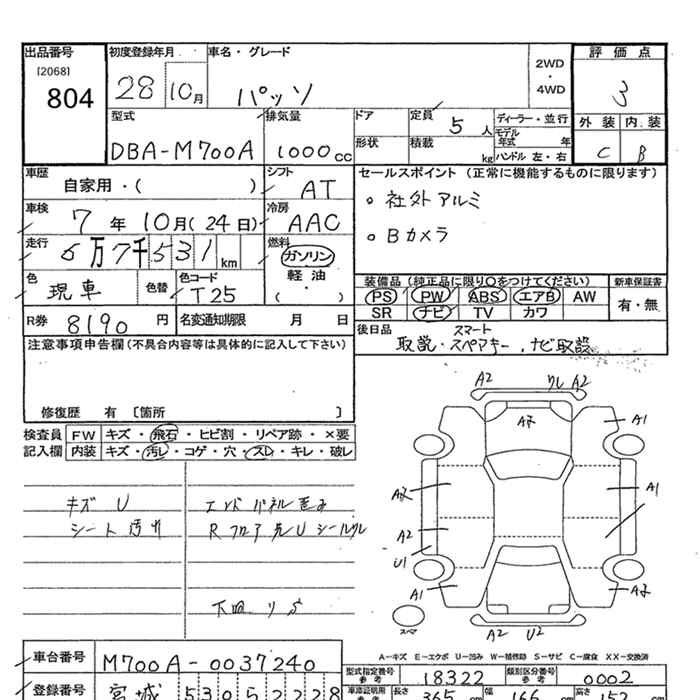 出品番号 初度登録年月 車名・グレード 2WD・4WD 評価点
[2068]
804 28 10月 パッソ 3
型式 排気量 ドア 定員 5人 ディーラー・並行 外装 内装
DBA-M700A 1000cc 形状 積載 kg モデル年式 年 ハンドル 左・右 C B
車歴 自家用・( ) シフト AT セールスポイント (正常に機能するものに限ります)
車検 7年10月(24日) 冷房 AAC 。社外アルミ
走行 6万7千531km 燃料 ガソリン 。Bカメラ
軽油・( )
色 現車 色替 色コード T25 装備品 (純正品に限り○をつけてください) 新車保証書
PS PW ABS エアB AW 有・無
SR ナビ TV カワ
R券 8190円 名変通知期限 月 日 後日品 スマート
取説・スペアキー、ナビ取説
注意事項申告欄 (不具合内容等は具体的に記入して下さい)
修復歴 有 [箇所 ]
検査員 FW キズ・飛石・ヒビ割・リペア跡・×要
記入欄 内装 キズ・汚レ・コゲ・穴・スレ・キレ・破レ
キズ U エンドパネル歪み
シート汚れ
A2 A2
A1
A1
A2
U1
A1
スペア
A2 U2
A-キズ E-エクボ U-凹み W-補修跡 S-サビ C-腐食 XX-交換済
車台番号 M700A-0037240 型式指定番号 参考 18322 類別区分番号 参考 0002
登録番号 宮城 530 ら 2228 車庫証明用 参考 長さ 365 cm 幅 166 cm 高さ 152 cm